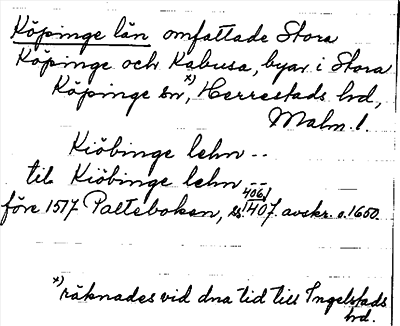 Köpinge län omfattade Stora
Köpinge och Kabusa, byar i Stora
Köpinge sn,x) Herrestads hd,
Malm. l.
Kiöbinge lehn --
til Kiöbinge lehn --
406/
före 1517 Palteboken, s. 1407. avskr. o. 1650.
x) räknades vid dna tid till Ingelstads
hd.